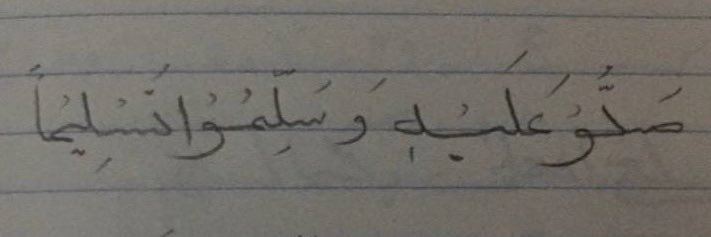 صَلُّوْ عَلَيْهِ وَسَلِّمُوْا تَسْلِيْمًا